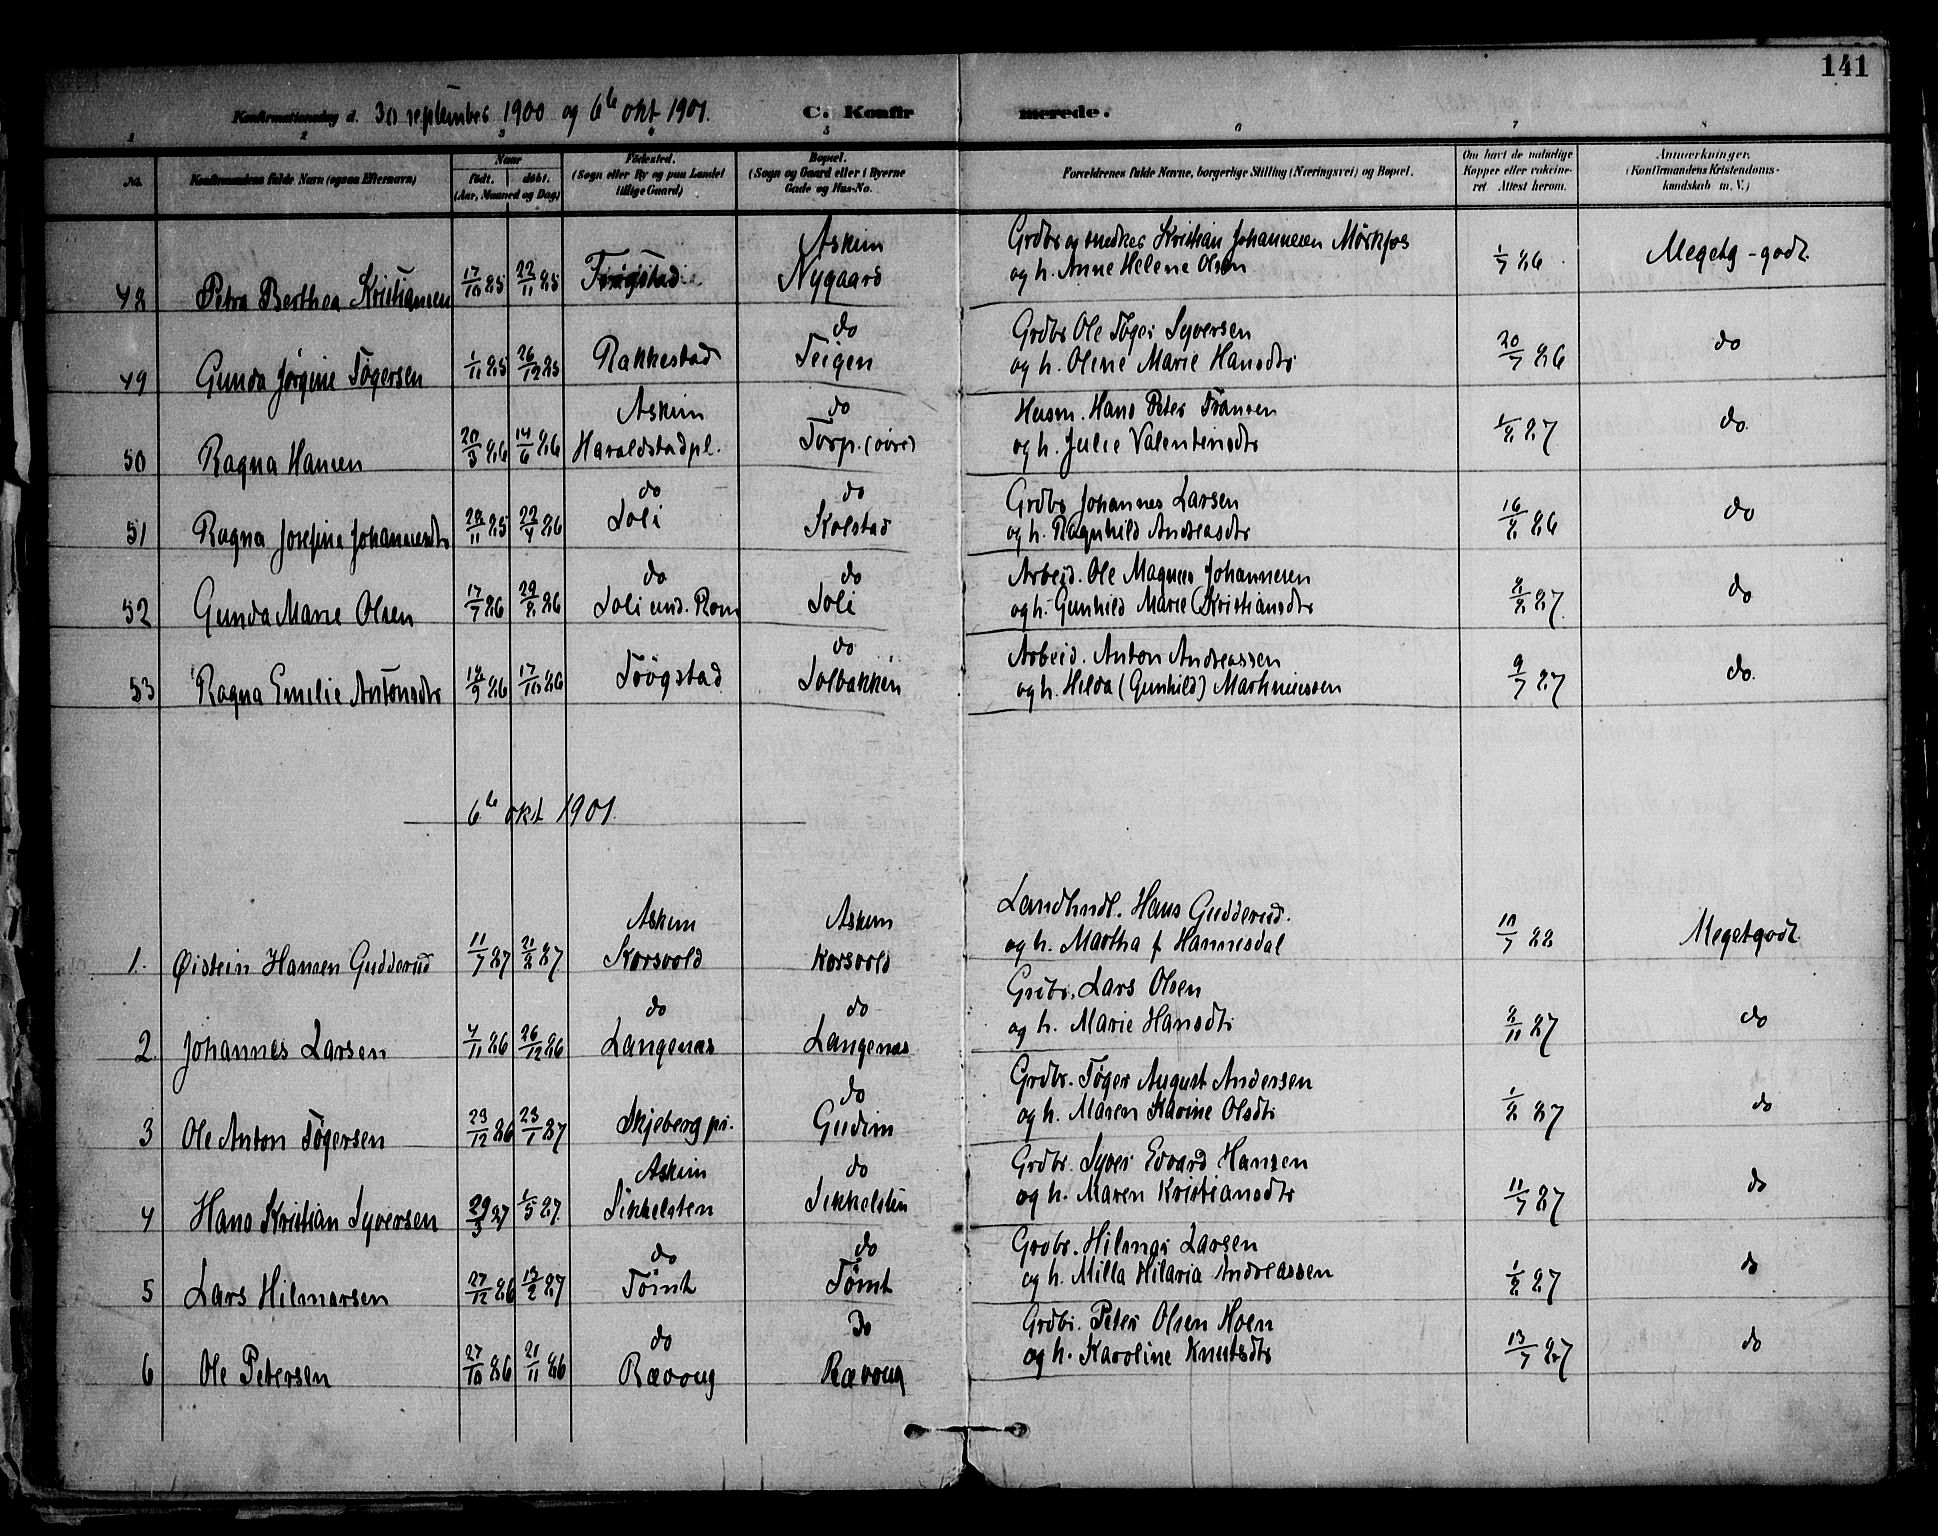 141
Konfirmationsdag d. 30 september 1900 og 6te okt 1901.
C. Konfirmerede.
1 2 3 4 5 6 7 8
No. Konfirmandens fulde Navn (ogsaa Efternavn)
Naar født. døbt. (Aar, Maaned og Dag)
Fødested. (Sogn eller By og paa Landet tillige Gaard)
Bopæl. (Sogn og Gaard eller i Byerne Gade og Hus-No.
Forældrenes fulde Navne, borgerlige Stilling (Næringsvei) og Bopæl.
Om havt de naturlige Kopper eller vakcineret Attest herom.
Anmærkninger. (Konfirmandens Kristendomskundskab m. V.)
48 Petra Berthea Kristiansen 17/10 85 22/11 85 Trøgstad Askim Nygaard
Grdbr og snedker Kristian Johannesen Mørkfos
og h. Anne Helene Olsen 1/7 86 Megetg-godt.
49 Gunda Jørgine Tøgersen 1/11 85 26/12 85 Rakkestad do Teigen
Grdbr Ole Tøger Syversen
og h. Oline Marie Hansdtr 20/7 86 do
50 Ragna Hansen 20/5 86 14/6 86 Askim Haraldstadpl. do Torp. (øvre)
Husm. Hans Peter Fransen
og h. Julie Valentinsdtr 1/8 87 do
51 Ragna Josefine Johannesdtr 28/11 85 22/4 86 do Soli do Kolstad
Grdbr Johannes Larsen
og h. Ragnhild Andreasdtr 16/8 86 do
52 Gunda Marie Olsen 17/7 86 29/8 86 do Soli und. Rom do Soli
Arbeid. Ole Magnus Johannesen
og h. Gunhild Marie Kristiansdtr 8/8 87 do
53 Ragna Emilie Antonsdtr 18/9 86 17/10 86 Trøgstad do Solbakken
Arbeid. Anton Andreassen
og h. Hilda (Gunhild) Martiniussen 9/7 87 do.
6te okt 1901.
1. Øistein Hansen Gudderud 11/7 87 21/8 87 Askim Korsvold Askim Korsvold
Landhndl. Hans Gudderud.
og h. Martha f Hannisdal 10/7 88 Megetgodt
2 Johannes Larsen 4/11 86 26/12 86 do Langenæs do Langenæs
Grdbr. Lars Olsen
og h. Marie Hansdtr 8/11 87 do
3 Ole Anton Tøgersen 23/12 86 23/1 87 Skjeberg pr. do Gudim
Grdbr. Tøger August Andersen
og h. Maren Karine Olsdtr 1/8 87 do
4 Hans Kristian Syversen 29/3 87 1/5 87. Askim Sikkelsten do Sikkelsten
Grdbr. Syver Edvard Hansen
og h. Maren Kristiansdtr 11/7 87 do
5 Lars Hilmarsen 27/12 86 13/2 87 do Tømt do Tømt
Grdbr. Hilmar Larsen
og h. Milla Hilaria Andreassen 1/8 87 do
6 Ole Petersen 27/10 86 21/11 86 do Rævoug Do Rævoug
Grdbr. Peter Olsen Hoen
og h. Karoline Knutsdtr 13/7 87 do